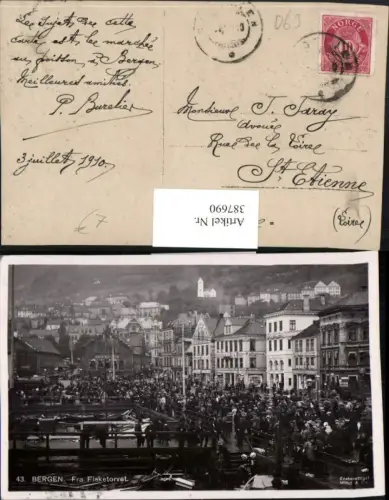 Le sujet de cette
carte est le marché
au poisson à Bergen.
Meilleures amitiés
P. Burelier
3 juillet 1910.
069
NORGE
10
Monsieur J. Taray
avoué
Rue de la Loire
St Etienne
(Loire)
Artikel Nr.
387690
43. BERGEN. Fra Fisketorvet.